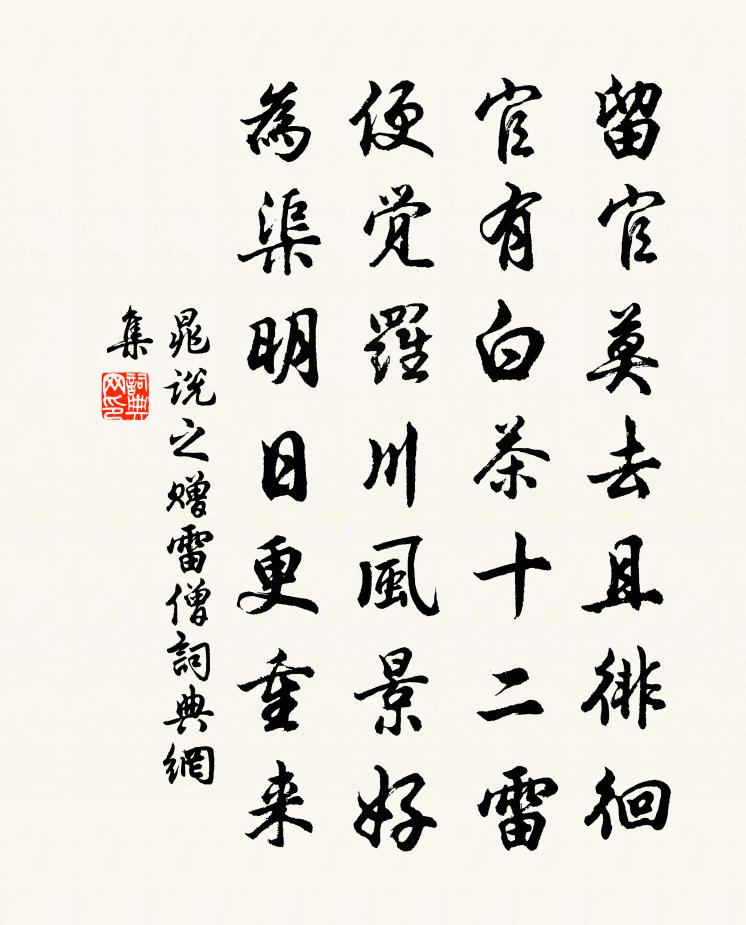 留官莫去且徘徊
官有白茶十二雷
便覚羅川風景好
為渠明日更重来
晁说之赠雷僧詞典網
集
詞典
网印